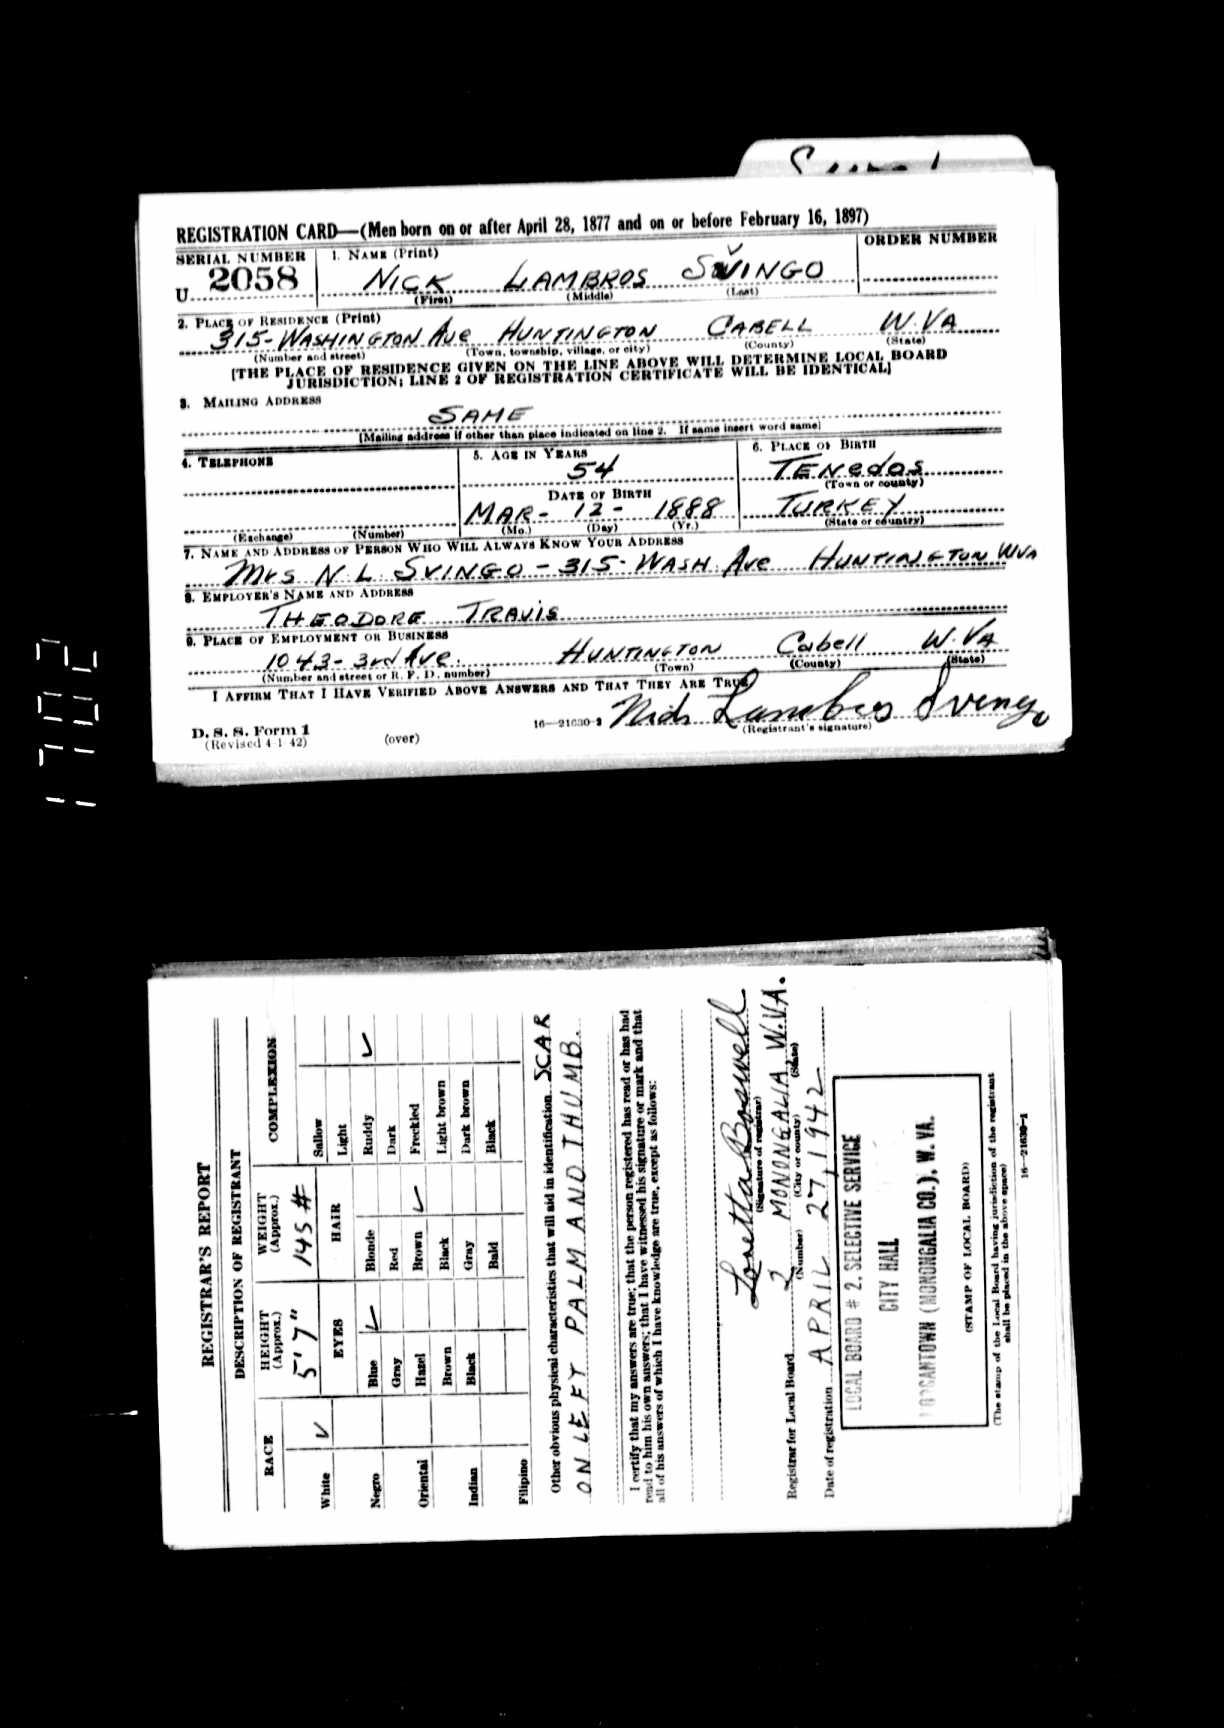 REGISTRATION CARD—(Men born on or after April 28, 1877 and on or before February 16, 1897)
SERIAL NUMBER
1. NAME (Print)
ORDER NUMBER
U 2058
NICK LAMBROS SVINGO
(First) (Middle) (Last)
2. PLACE OF RESIDENCE (Print)
315-WASHINGTON AVE HUNTINGTON CABELL W.VA
(Number and street) (Town, township, village, or city) (County) (State)
[THE PLACE OF RESIDENCE GIVEN ON THE LINE ABOVE WILL DETERMINE LOCAL BOARD
JURISDICTION; LINE 2 OF REGISTRATION CERTIFICATE WILL BE IDENTICAL]
3. MAILING ADDRESS
SAME
[Mailing address if other than place indicated on line 2. If same insert word same]
4. TELEPHONE
5. AGE IN YEARS
54
6. PLACE OF BIRTH
TENEdOS
(Town or county)
DATE OF BIRTH
MAR- 12- 1888
TURKEY
(Exchange) (Number)
(Mo.) (Day) (Yr.)
(State or country)
7. NAME AND ADDRESS OF PERSON WHO WILL ALWAYS KNOW YOUR ADDRESS
Mrs N. L. SVINGO - 315- WASH. Ave HUNTINGTON WVA
8. EMPLOYER'S NAME AND ADDRESS
THEODORE TRAVIS
9. PLACE OF EMPLOYMENT OR BUSINESS
1043- 3rd Ave. HUNTINGTON Cabell W.VA
(Number and street or R. F. D. number) (Town) (County) (State)
I AFFIRM THAT I HAVE VERIFIED ABOVE ANSWERS AND THAT THEY ARE TRUE.
D. S. S. Form 1
(Revised 4-1-42)
(over)
16—21630-2
Nick Lambros Svingo
(Registrant's signature)
1702
REGISTRAR'S REPORT
DESCRIPTION OF REGISTRANT
RACE
HEIGHT (Approx.)
WEIGHT (Approx.)
COMPLEXION
5' 7"
145 #
White ✓
EYES
HAIR
Sallow
Light
Negro
Blue ✓
Blonde
Ruddy ✓
Gray
Red
Dark
Oriental
Hazel
Brown ✓
Freckled
Brown
Black
Light brown
Indian
Black
Gray
Dark brown
Bald
Black
Filipino
Other obvious physical characteristics that will aid in identification SCAR
ON LEFT PALM AND THUMB.
I certify that my answers are true; that the person registered has read or has had
read to him his own answers; that I have witnessed his signature or mark and that
all of his answers of which I have knowledge are true, except as follows:
Loretta Boswell
(Signature of registrar)
Registrar for Local Board 2 MONONGALIA W.VA.
(Number) (City or county) (State)
Date of registration APRIL 27, 1942
LOCAL BOARD # 2. SELECTIVE SERVICE
CITY HALL
MORGANTOWN (MONONGALIA CO.), W. VA.
(STAMP OF LOCAL BOARD)
(The stamp of the Local Board having jurisdiction of the registrant
shall be placed in the above space)
16—21630-1